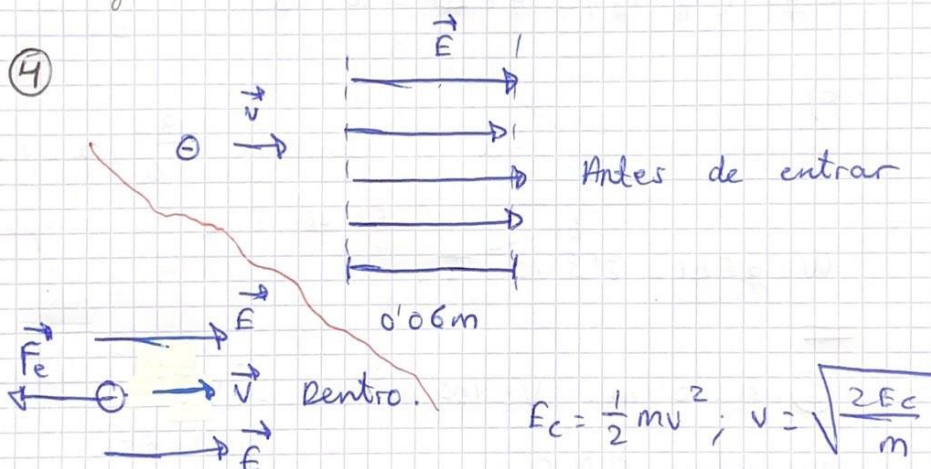 ④
E
v
Antes de entrar
0'06m
E
Fe
v Dentro.
E
Ec = 1/2 mv²; v = √(2Ec/m)